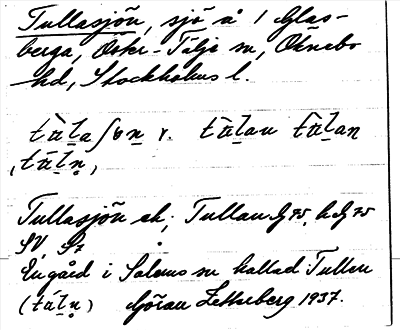 Tullasjön, sjö å 1 Glas-
berga, Öster-Tälje sn, Öknebo
hd, Stockholms l.
tùlaʃøn r. tùlan tùlan
(túln)
Tullasjön ek; Tullan G 75, h. G 75
SV,
En gård i Salems sn kallad Tullen
(túln) Göran Zetterberg 1937.